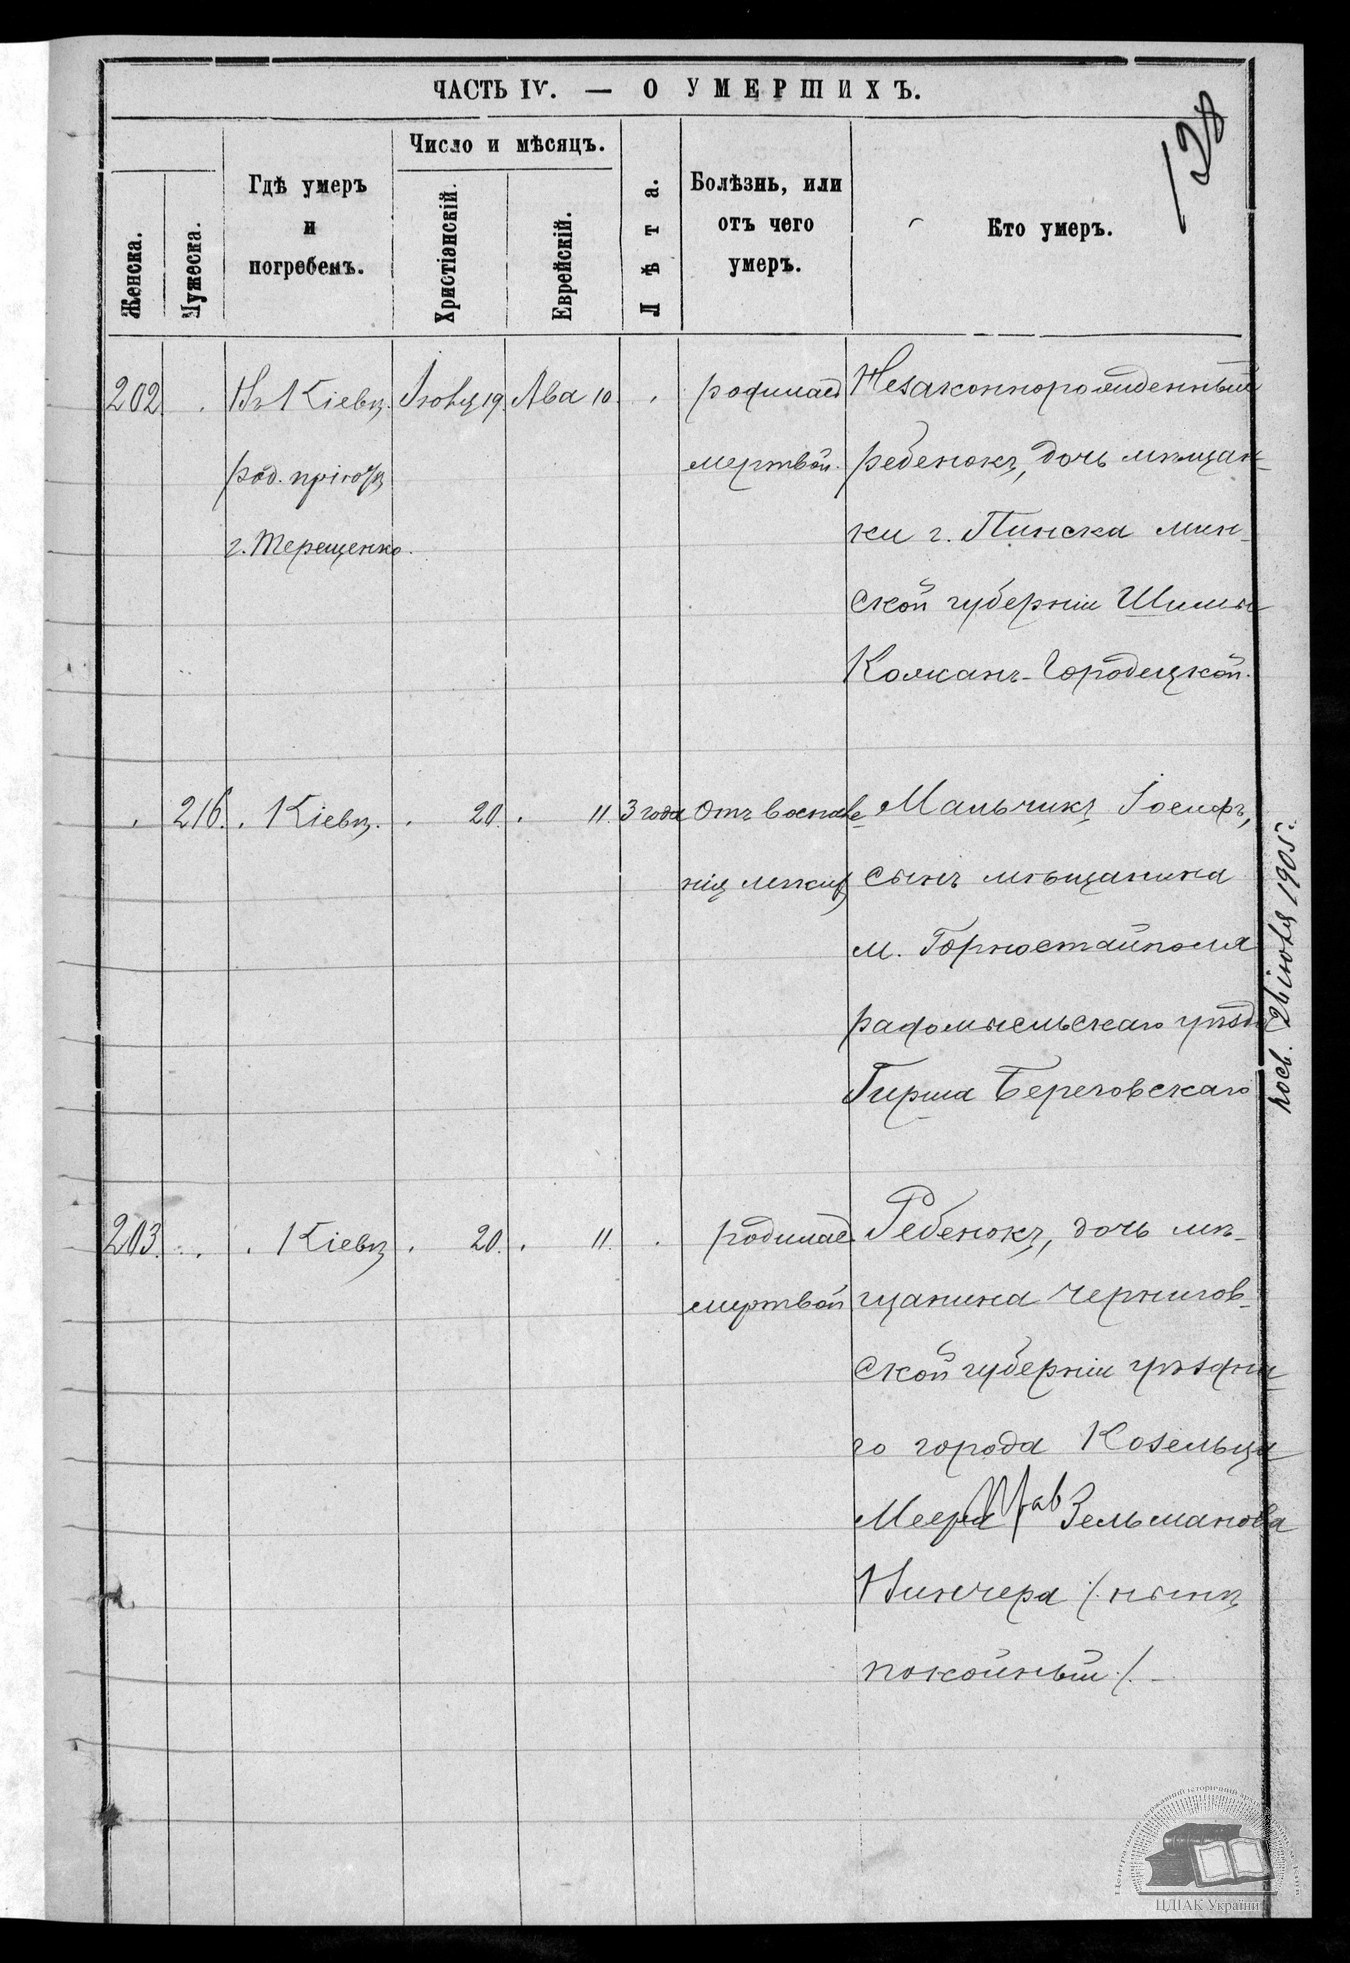 ЧАСТЬ IV. — О УМЕРШИХЪ.
128
Женска.
Мужеска.
Гдѣ умеръ
и
погребенъ.
Число и мѣсяцъ.
Христіанскій.
Еврейскій.
Лѣта.
Болѣзнь, или
отъ чего
умеръ.
Кто умеръ.
202 . Въ Кіевѣ. Іюля 19 Ава 10 . родилась Незаконнорожденный
род. пріютѣ мертвой. ребенокъ, дочь мѣщан-
г. Терещенко. ки г. Пинска мин-
ской губерніи Шимы
Кожанъ-Городецкой.
. 216. . Кіевѣ. . 20. . 11. 3 года Отъ воспале- Мальчикъ Іосифъ,
нія легкихъ сынъ мѣщанина
м. Горностайполя
радомысльскаго уѣзда
Гирша Береговскаго
203. . . . Кіевѣ . 20. . 11. . родилась Ребенокъ, дочь мѣ-
мертвой щанина Чернигов-
ской губерніи уѣздна-
го города Козельца
Меера Зельманова
Нинчера /. нынѣ
покойный ./.
26 іюля 1905 г.
ЦДІАК України